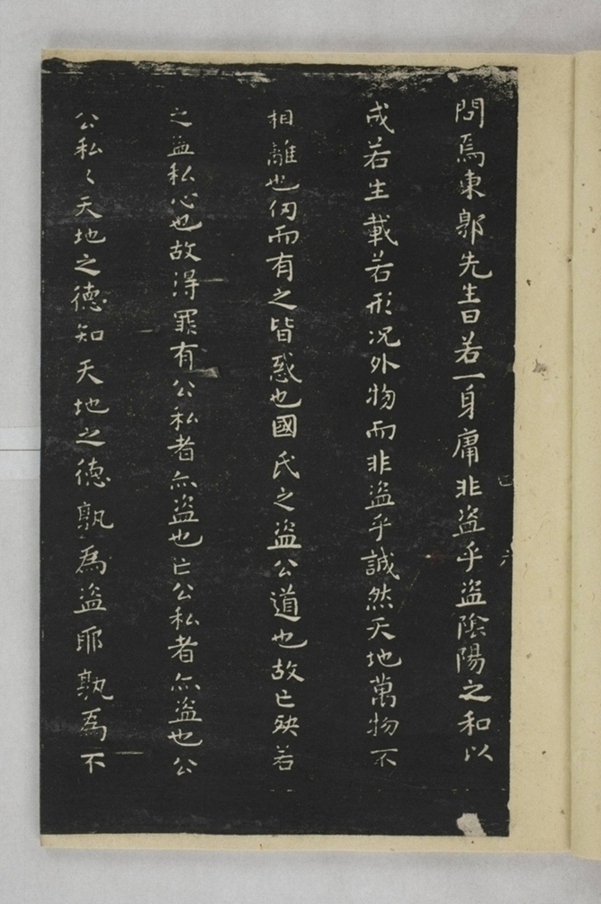 問焉東郭先生曰若一身庸非盜乎盜陰陽之和以
成若生載若形况外物而非盜乎誠然天地萬物不
相離也仞而有之皆惑也國氏之盜公道也故亡殃若
之盜私心也故淂罪有公私者亦盜也亡公私者亦盜也公
公私〻天地之德知天地之德孰為盜耶孰為不